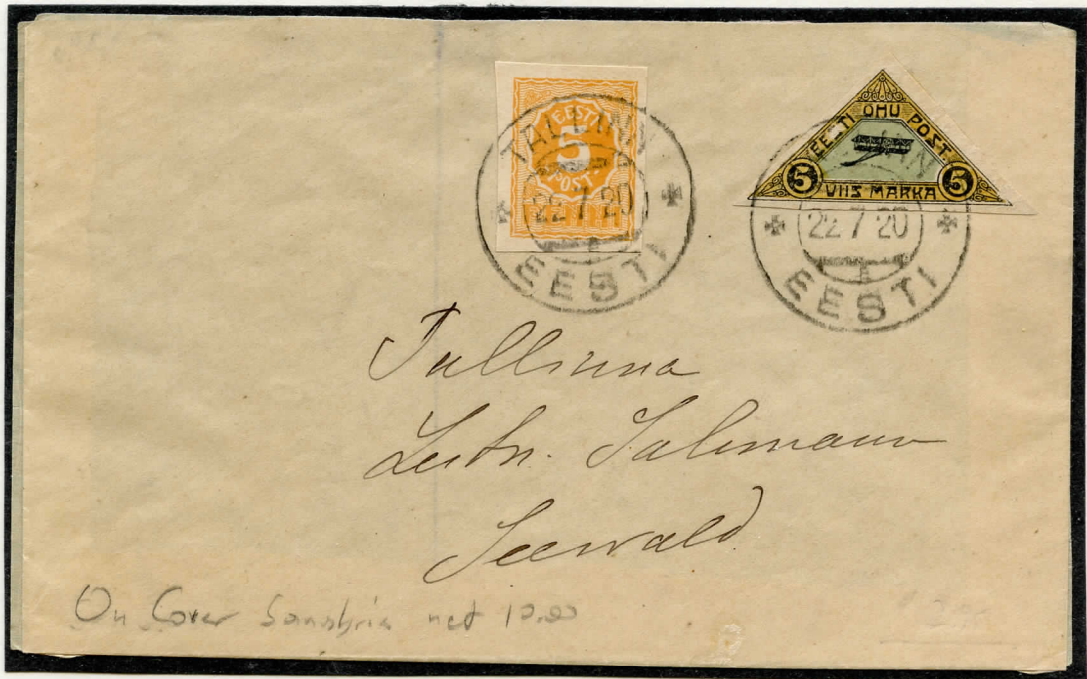 EESTI
5
POST
TALLINN
22 7 20
EESTI
EESTI ÕHU POST.
5 VIIS MARKA 5
22 7 20
EESTI
Tallinna
Leitn. Salemann
Seewald
On Cover Sanabria net 10.00